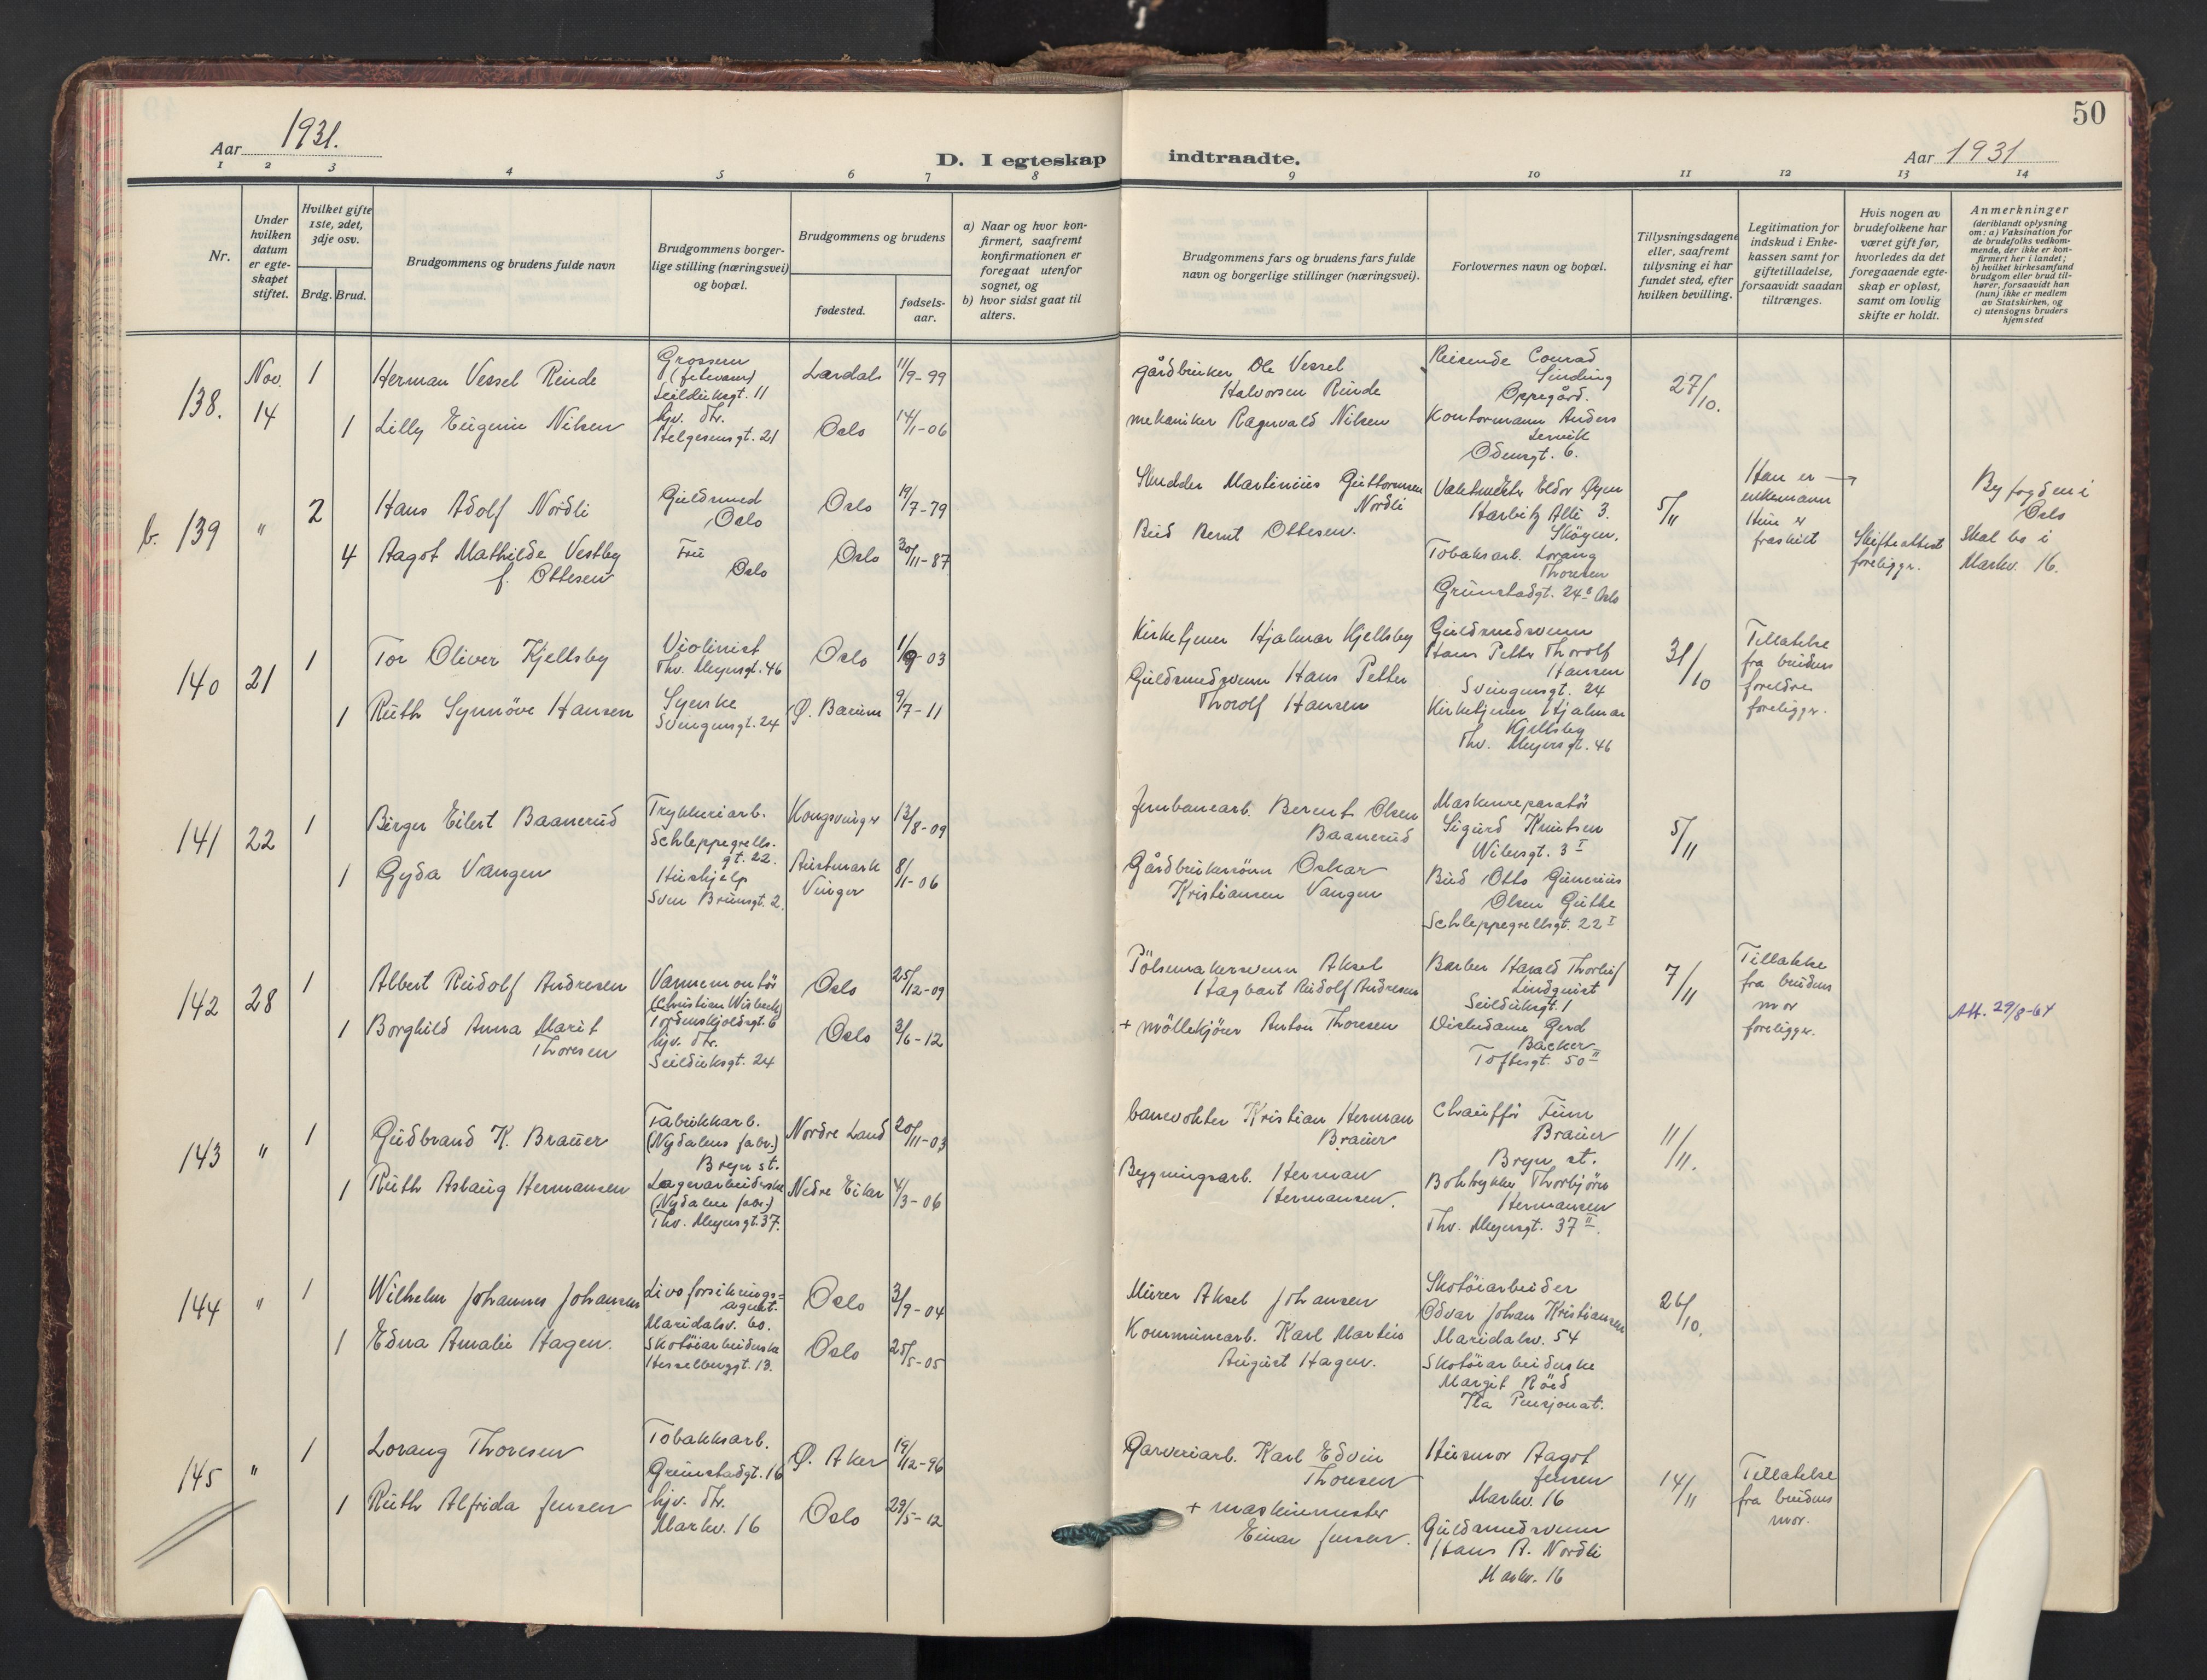 50
Aar 1931.
D. I egteskap indtraadte.
Aar 1931
1 2 3 4 5 6 7 8 9 10 11 12 13 14
Nr.
Under hvilken datum er egte-skapet stiftet.
Hvilket gifte 1ste, 2det, 3dje osv.
Brdg. Brud.
Brudgommens og brudens fulde navn
Brudgommens borger-lige stilling (næringsvei) og bopæl.
Brudgommens og brudens
fødested.
fødsels-aar.
a) Naar og hvor kon-firmert, saafremt konfirmationen er foregaat utenfor sognet, og
b) hvor sidst gaat til alters.
Brudgommens fars og brudens fars fulde navn og borgerlige stillinger (næringsvei).
Forlovernes navn og bopæl.
Tillysningsdagene eller, saafremt tillysning ei har fundet sted, efter hvilken bevilling.
Legitimation for indskud i Enke-kassen samt for giftetilladelse, forsaavidt saadan tiltrænges.
Hvis nogen av brudefolkene har været gift før, hvorledes da det foregaaende egte-skap er opløst, samt om lovlig skifte er holdt.
Anmerkninger
(deriblandt oplysning om: a) Vaksination for de brudefolks vedkom-mende, der ikke er kon-firmert her i landet; b) hvilket kirkesamfund brudgom eller brud til-hører, forsaavidt han (hun) ikke er medlem av Statskirken, og c) utensogns bruders hjemsted
138. Nov. 14
1 Herman Vessel Rinde
Seilduksgt. 11
Lardals 11/9-99
gårdbruker Ole Vessel
Halvorsen Rinde
Reisende Conrad
Sinding
Oppegård.
27/10.
1 Lilly Eugenie Nilsen
hjv. dtr.
Helgesensgt. 21
Oslo 14/1-06
mekaniker Ragnvald Nilsen
Kontormann Anders
Odensgt. 6.
b. 139 "
2 Hans Adolf Nordli
Guldsmed
Oslo
Oslo 19/7-79
Skredder Martinius Guttormsen
Nordli
Harbitz Alle 3.
Skøyen.
5/11
Han er
enkemann
Hun er
fraskilt
Skifteattest
foreligger.
Byfogden i
Oslo
Skal bo i
Markv. 16.
4 Aagot Mathilde Vestby
f. Ottesen
Fru
Oslo
Oslo 30/11-87
Bud Bernt Ottesen.
Tobaksarb. Lorang
Thoresen
Grünstadgt. 24 Oslo
140 21
1 Tor Oliver Kjellsby
Violinist
Thv. Meyersgt. 46
Oslo 1/9-03
Kirketjener Hjalmar Kjellsby
Guldsmedsvenn
Hans Petter Thorolf
Hansen
Svingensgt. 24
31/10
Tillatelse
fra brudens
foreldre
foreligger.
1 Ruth Synnöve Hansen
Syerske
Svingensgt. 24
Ø. Bærum 9/7-11
Guldsmedsvenn Hans Petter
Thorolf Hansen
Kirketjener Hjalmar
Kjellsby
Thv. Meyersgt. 46
141 22
1 Birger Eilert Baanerud
Trykkeriarb.
Schleppegrells-
gt. 22.
Kongsvinger 13/8-09
Jernbanearb. Berent Olsen
Baanerud
Maskinreparatör
Sigurd Knutsen
Wilsesgt. 3 I
5/11
1 Gyda Vangen
Hushjelp
Sven Brunsgt. 2.
Austmark
Vinger
8/1-06
Gårdbrukersönn Oskar
Kristiansen Vangen
Bud Otto Gunerius
Olsen Guthe
Schleppegrellsgt. 22 I
142 28
1 Albert Rudolf Andresen
Varmemontör
(Christian Wisbech)
Tordenskjoldsgt. 6
Oslo 25/12-09
Pölsemakersvenn Aksel
Hagbart Rudolf Andresen
Barber Harald Thorleif
Lindquist
Seilduksgt. 1
7/11
Tillatelse
fra brudens
mor
foreligger.
Att. 29/8-64
1 Borghild Anna Marit
Thoresen
hjv. dtr.
Seilduksgt. 24
Oslo 3/6-12
+ möllekjörer Anton Thoresen
Gerd
Bäcker
Toftesgt. 50 II
143 "
1 Gudbrand K. Brauer
Fabrikkarb.
(Nydalens fabr.)
Bryn st.
Nordre Land 20/11-03
banevokter Kristian Herman
Brauer
Chauffør Finn
Brauer
Bryn st.
11/11.
1 Ruth Aslaug Hermansen
Lagerarbeiderske
(Nydalen fabr.)
Thv. Meyersgt. 37.
Nedre Eiker 4/3-06
Bygningsarb. Herman
Hermansen.
Boktrykker Thorbjörn
Hermansen
Thv. Meyersgt. 37 II.
144 "
1 Wilhelm Johannes Johansen
Livsforsikrings-
agent.
Maridalsv. 60.
Oslo 3/9-04
Murer Aksel Johansen
Skotöiarbeider
Odvar Johan Kristiansen
Maridalsv. 54
26/10.
1 Edna Amalie Hagen.
Skotöiarbeiderske
Hesselbergsgt. 13.
Oslo 25/5-05
Kommunearb. Karl Martin
August Hagen.
Skotöiarbeiderske
Margit Röed
Ila Pensjonat.
145 "
1 Lorang Thoresen
Tobakksarb.
Grünstadgt. 16
Ø. Aker 19/12-96
Garveriarb. Karl Edvin
Thoresen
Husmor Aagot
Jensen
Markv. 16
14/11
Tillatelse
fra brudens
mor.
1 Ruth Alfrida Jensen
hjv. dtr.
Markv. 16
Oslo 29/5-12
+ maskinmester
Einar Jensen.
Guldsmedsvenn
Hans A. Nordli
Markv. 16